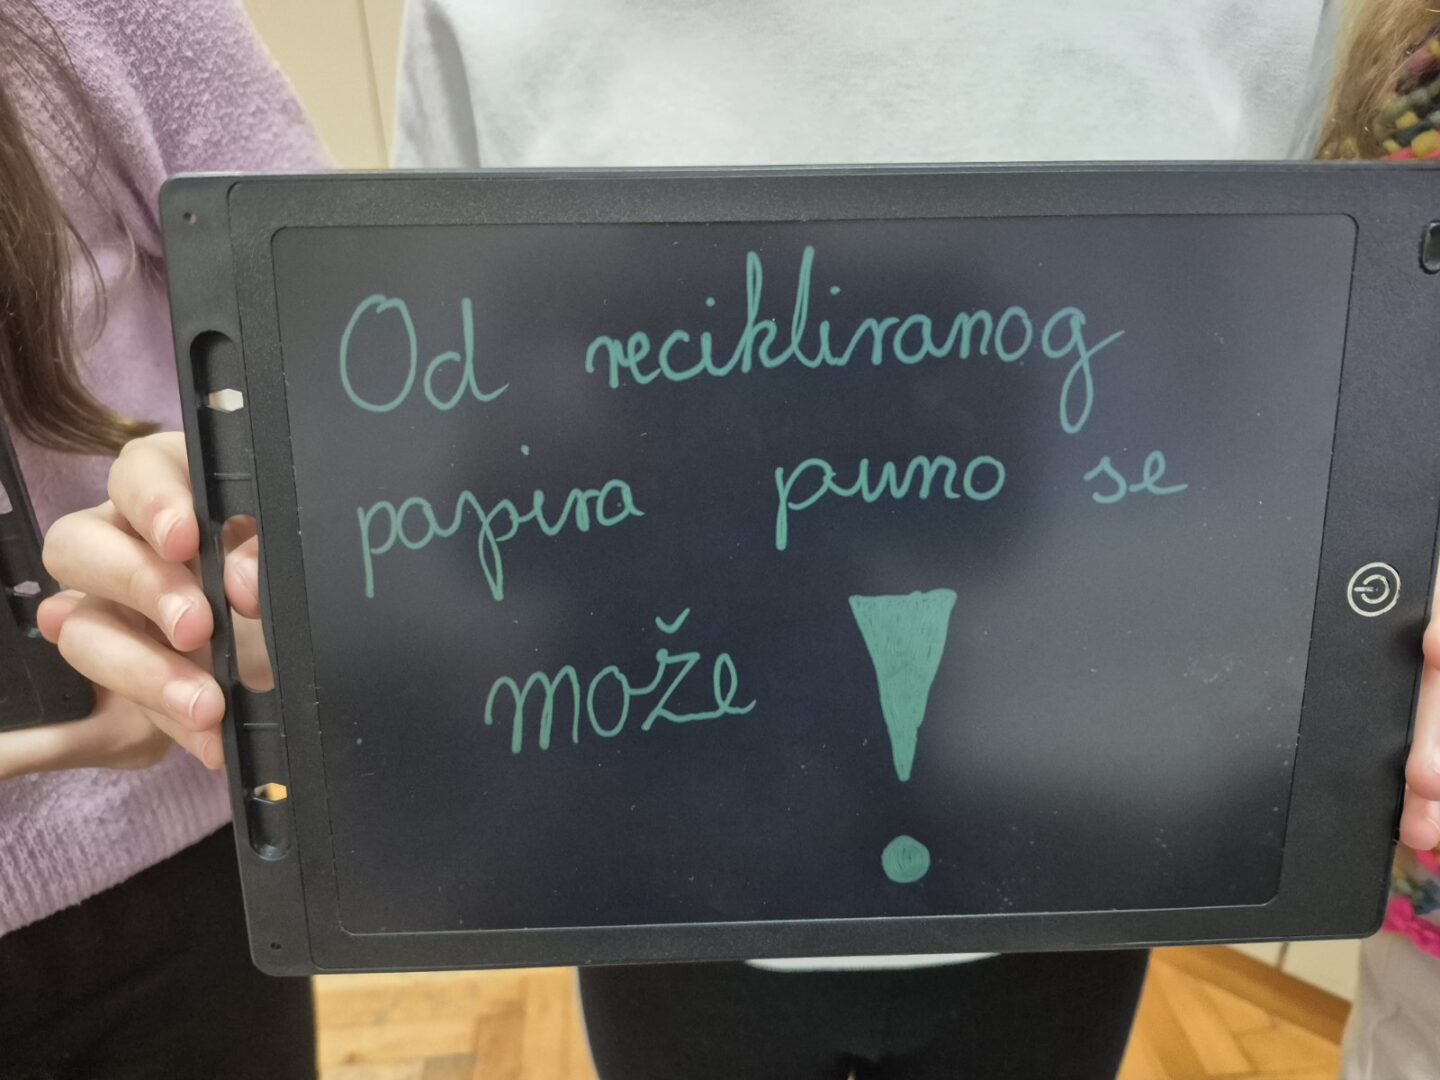 Od recikliranog
papira puno se
može !